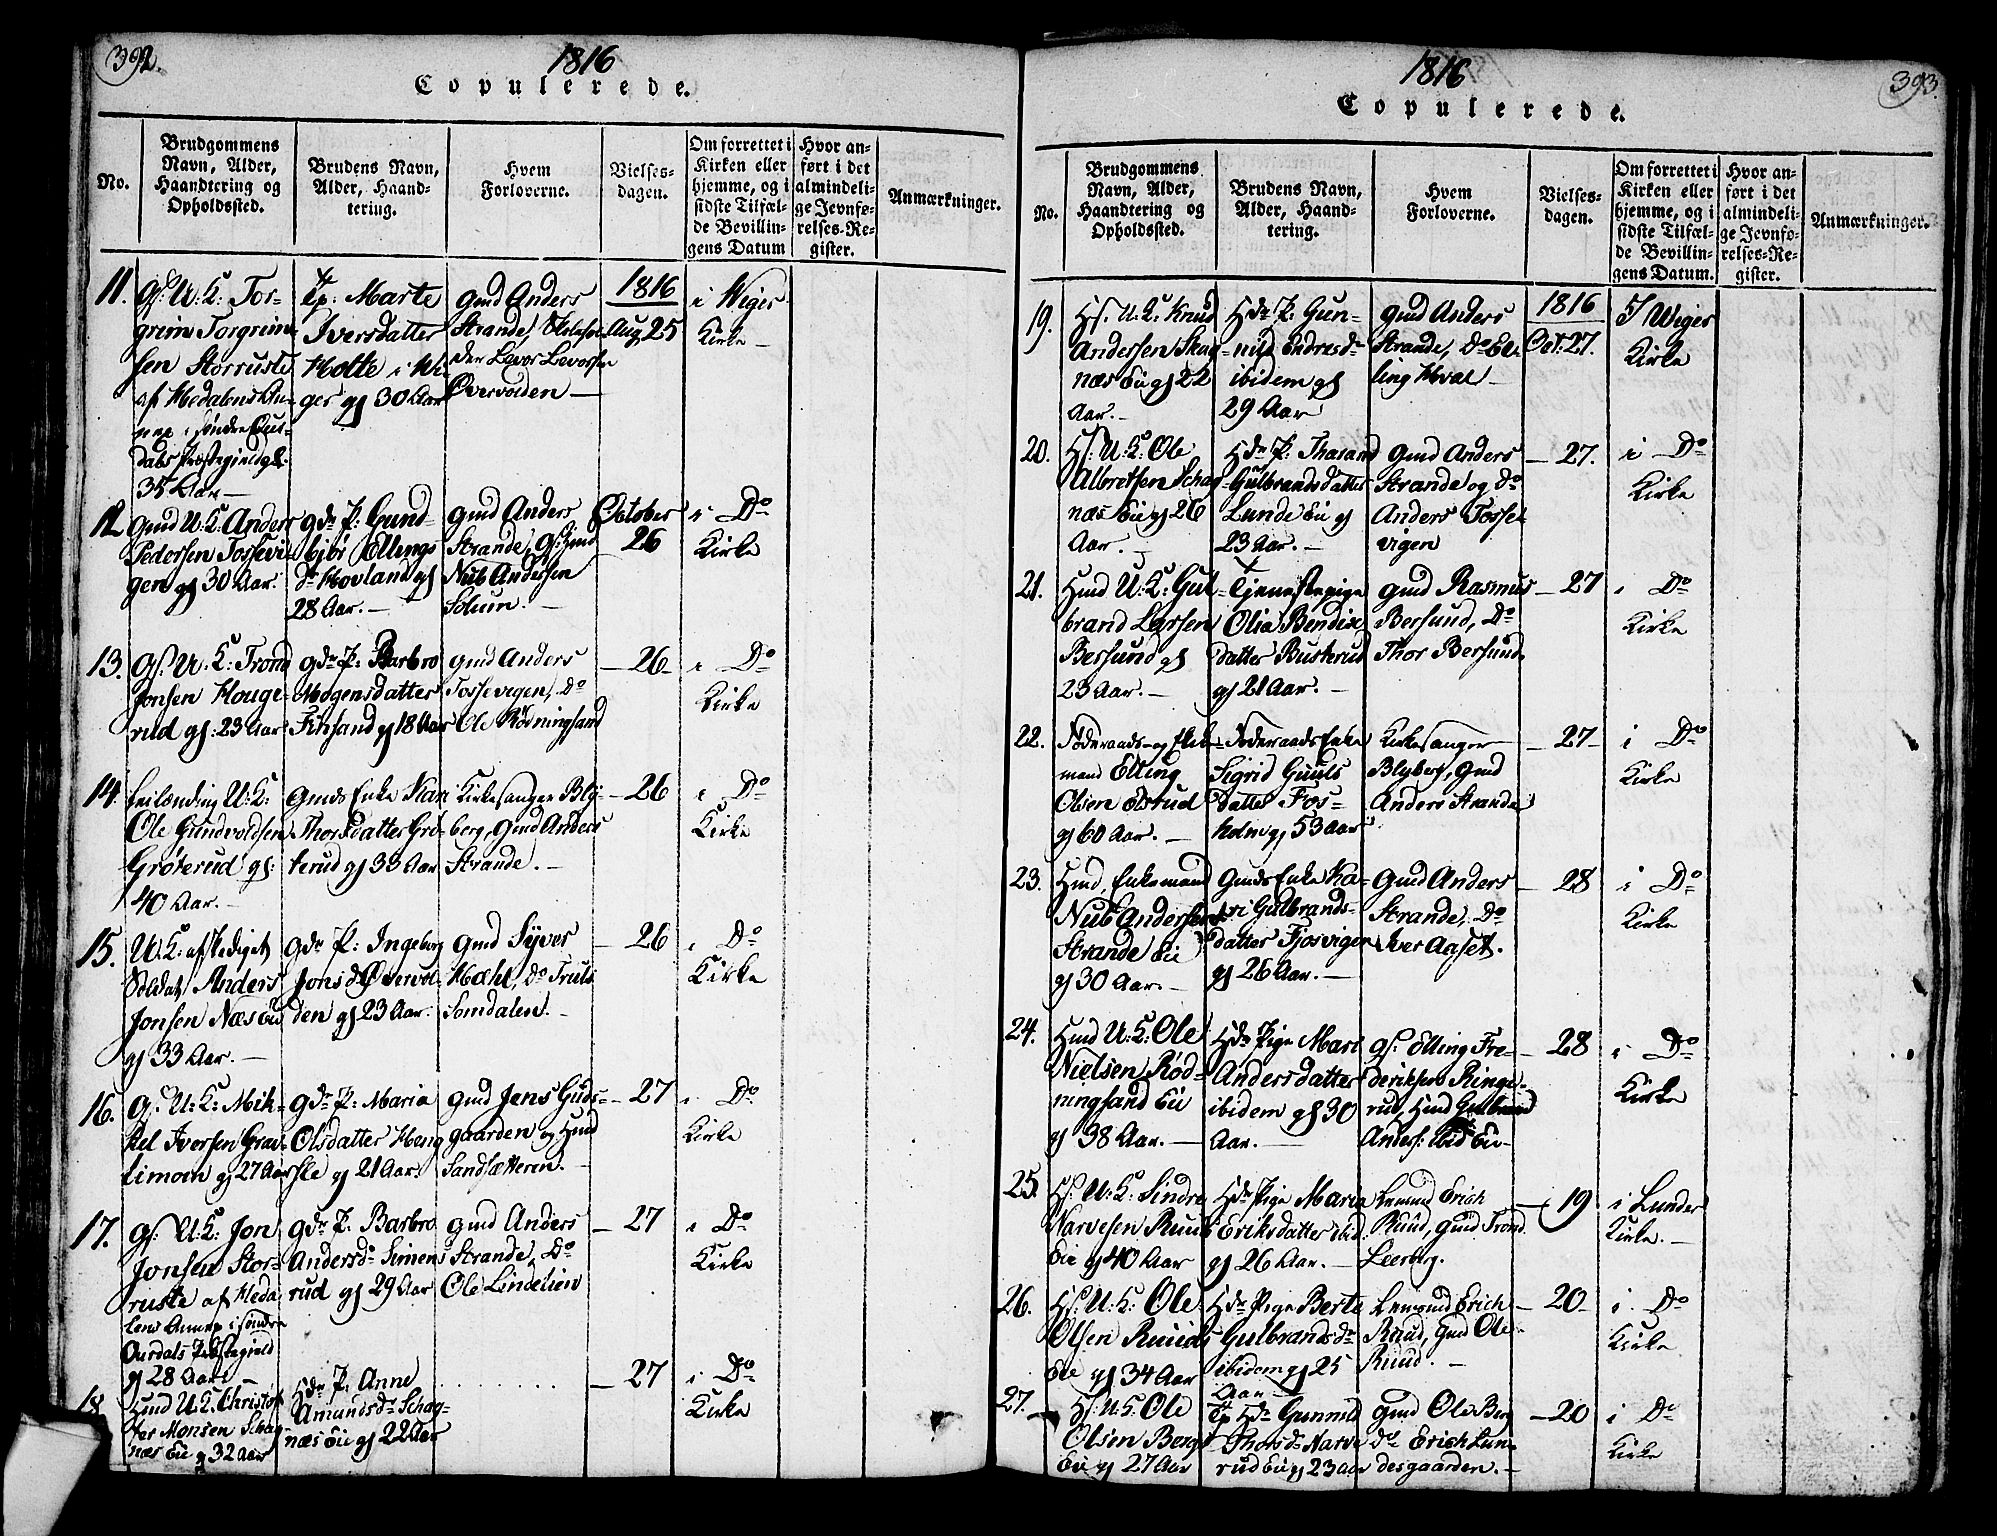 392.
1816
Copulerede.
No.
Brudgommens
Navn, Alder,
Haandtering og
Opholdssted.
Brudens Navn,
Alder, Haand-
tering.
Hvem
Forloverne.
Vielses-
dagen.
Om forrettet i
Kirken eller
hjemme, og i
sidste Tilfæl-
de Bevillin-
gens Datum
Hvor an-
ført i det
almindeli-
ge Jevnfø-
relses-Re-
gister.
Anmærkninger.
11.
Gs: U: K: Tor-
grim Torgrim-
sen Storruste
af Hedalens An-
nex i søndre
35 Aar
Tp: Marte
Iversdatter
Holte i
ger gl 30 Aar
Gmd Anders
Strande,
Levor Levorsen
Øvervolden
1816
Aug. 25
i Wiger
Kirke
12
Gmd U: K Anders
Pedersen Tossevi-
gen gl 30 Aar.
Gdr P: Gund-
bjør Ellings
Dr Hovland gl
28 Aar.
Gmd Anders
Strande, Gs: Gmd
Nub Andersen
Solum.
October
26
i Do
Kirke
13.
Gs. U: K: Trond
Jonsen Houge-
rud gl: 23 Aar
Gdr P: Barbro
Mogensdatter
Finsand gl 18 Aar
Gmd Anders
Tossevigen, Do
Ole Rødningsand
26
i Do
Kirke
14.
U: K:
Ole Gundvoldsen
Grøterud gl:
40 Aar.
Gmds Enke Kari
Thorsdatter Grø-
terud gl 33 Aar
Kirkesanger Bly-
berg, Gmd Anders
Strande.
26
i Do
Kirke
15.
U: K: afskediget
Soldat Anders
Jonsen Næs Eie
gl 33 Aar.
Gdr P: Ingeborg
Jonsd Øvervol-
den gl 23 Aar.
Gmd Syver
Hæhl, Do Truls
Somdalen.
26
i Do
Kirke
16.
G. U: K: Mik-
kel Iversen Grav-
limoen gl 27 Aar
Gdr P: Maria
Olsdatter Heng
sle gl 21 Aar
Gmd Jens Guds-
gaarden og Hmd
Sandsætteren.
27
i Do
Kirke
17.
Gs: U: K: Jon
Jonsen Stor-
ruste af Heda
lens Annex i søndre
Ourdals Præstegield
gl 28 Aar
Gdr P. Barbro
Andersdr Simens
rud gl 29 Aar
Gmd Anders
Strande, Do
Ole Lindelien
27
i Do
Kirke
18
Hmd U: K. Christof
fer Monsen Skag
næs Eie gl 32 Aar
Hdr P: Anne
Amundsdr Skag-
næs Eie gl 22 Aar
27
i Do
Kirke
393.
1816
Copulerede.
No.
Brudgommens
Navn, Alder,
Haandtering og
Opholdssted.
Brudens Navn,
Alder, Haand-
tering.
Hvem
Forloverne.
Vielses-
dagen.
Om forrettet i
Kirken eller
hjemme, og i
sidste Tilfæl-
de Bevillin-
gens Datum.
Hvor an-
ført i det
almindeli-
ge Jevnfø-
relses-Re-
gister.
Anmærkninger.
19.
Hs. U: K. Knud
Andersen Skag-
næs Eie gl 22
Aar.
Hdr P. Gun-
nild Endresdr
ibidem gl
29 Aar
Gmd Anders
Strande, Do El-
ling Hval
1816
Oct. 27.
I Wiger
Kirke
20.
Hs: U: K: Ole
Albretsen Skag
næs Eie gl 26
Aar.
Hdr P. Thorand
Gulbrandsdatter
Lunde Eie gl
23 Aar.
Gmd Anders
Strande og Do
Anders Tosse-
vigen
27.
i Do
Kirke
21.
Hmd U: K: Gul
brand Larsen
Bersund gl
23 Aar.
Tjenestepige
Olia Bendix
datter Buskerud
gl 21 Aar.
Gmd Rasmus
Bersund, Do
Thor Bersund.
27
i Do
Kirke
22.
Føderaads- og Enke-
mand Elling
Olsen Elsrud
gl 60 Aar.
Føderaads Enke
Sigrid Guuls
datter Fos-
holm gl 53 Aar
Kirkesanger
Blyberg, Gmd
Anders Strande
27
i Do
Kirke
23.
Hmd, Enkemand
Nub Andersen
Strande Eie
gl 30 Aar.
Gmds Enke Ka-
ri Gulbrands-
datter Fjosvigen
gl 26 Aar.
Gmd Anders
Strande, Do
Iver Aaset.
28
i Do
Kirke
24.
Hmd U: K: Ole
Nielsen Rød-
ningsand Eie
gl 38 Aar.
Hdr Pige Mari
Andersdatter
ibidem gl 30
Aar.
Gs: Elling Fre-
deriksen Ringe-
rud, Hmd Gulbrand
Anders: ibid Eie
28
i Do
Kirke
25.
Hs. U: K: Sindre
Narvesen Ruud
Eie gl 40 Aar
Hdr Pige Maria
Eriksdatter ibid
gl 26 Aar.
Lensmd Erich
Ruud, Gmd Trond
Leerberg.
19
i Lunder
Kirke.
26.
Hs: U: K: Ole
Olsen Ruuds
Eie gl 34 Aar
Hdr Pige Berte
Gulbrandsdr
ibidem gl 25
Aar
Lensmd Erich
Ruud, Gmd Ole
Ruud.
20
i Do
Kirke
27.
Hs: U: K: Ole
Olsen Bergs
Eie gl 27 Aar
Tp Hdr Gunnild
Thorsdr Narve
rud Eie gl 23 Aar
Gmd Ole Berg
Do Erich Lun-
desgaarden.
20
i Do
Kirke